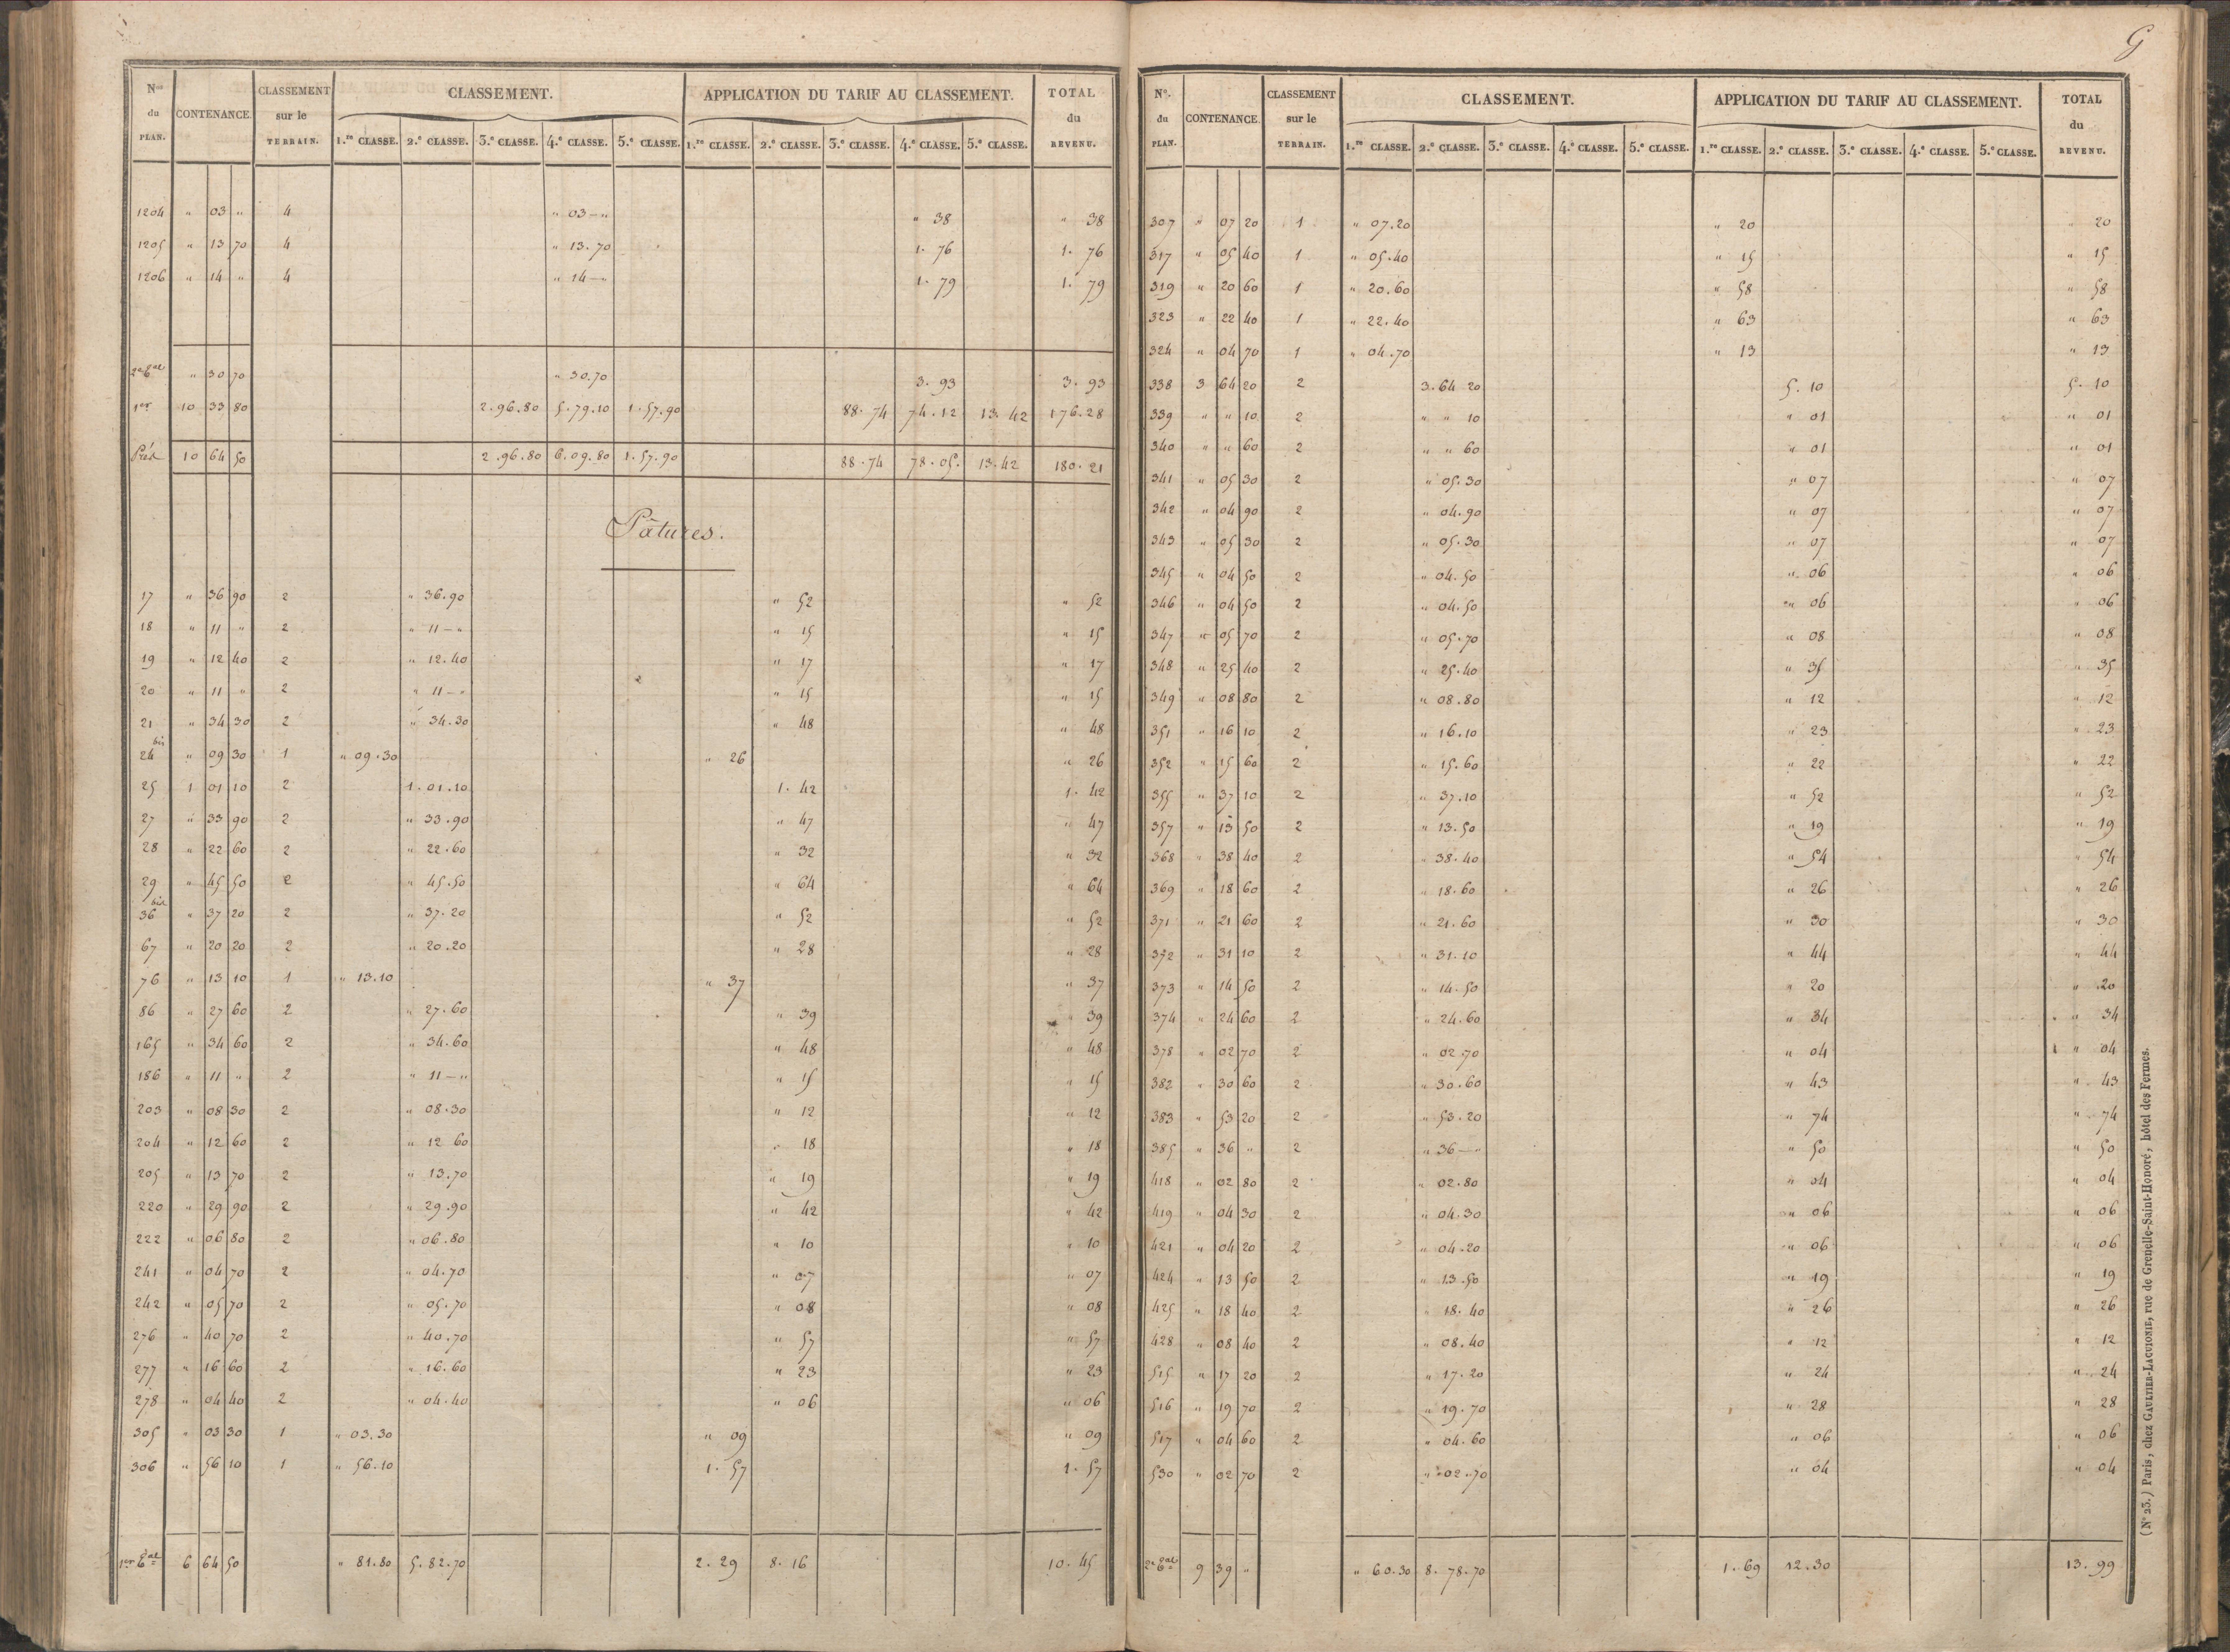 G
Nos du PLAN. CONTENANCE. CLASSEMENT sur le TERRAIN. CLASSEMENT. APPLICATION DU TARIF AU CLASSEMENT. TOTAL du REVENU.
1.re CLASSE. 2.e CLASSE. 3.e CLASSE. 4.e CLASSE. 5.e CLASSE. 1.re CLASSE. 2.e CLASSE. 3.e CLASSE. 4.e CLASSE. 5.e CLASSE.
1204 " 03 " 4 " 03 – " " 38 " 38
1205 " 13 70 4 " 13.70 1. 76 1. 76
1206 " 14 " 4 " 14 – " 1. 79 1. 79
2e tal " 30 70 " 30.70 3. 93 3. 93
1er 10 33 80 2.96.80 5.79.10 1.57.90 88.74 74.12 13.42 176.28
Prés 10 64 50 2.96.80 6.09.80 1.57.90 88.74 78.05. 13.42 180.21
Pâtures.
17 " 36 90 2 " 36.90 " 52 " 52
18 " 11 " 2 " 11 – " " 15 " 15
19 " 12 40 2 " 12.40 " 17 " 17
20 " 11 " 2 " 11 – " " 15 " 15
21 " 34 30 2 " 34.30 " 48 " 48
24 bis " 09 30 1 " 09.30 " 26 " 26
25 1 01 10 2 1.01.10 1. 42 1. 42
27 " 33 90 2 " 33.90 " 47 " 47
28 " 22 60 2 " 22.60 " 32 " 32
29 " 45 50 2 " 45.50 " 64 " 64
36 bis " 37 20 2 " 37.20 " 52 " 52
67 " 20 20 2 " 20.20 " 28 " 28
76 " 13 10 1 " 13.10 " 37 " 37
86 " 27 60 2 " 27.60 " 39 " 39
165 " 34 60 2 " 34.60 " 48 " 48
186 " 11 " 2 " 11 – " " 15 " 15
203 " 08 30 2 " 08.30 " 12 " 12
204 " 12 60 2 " 12 60 " 18 " 18
205 " 13 70 2 " 13.70 " 19 " 19
220 " 29 90 2 " 29.90 " 42 " 42
222 " 06 80 2 " 06.80 " 10 " 10
241 " 04 70 2 " 04.70 " 07 " 07
242 " 05 70 2 " 05.70 " 08 " 08
276 " 40 70 2 " 40.70 " 57 " 57
277 " 16 60 2 " 16.60 " 23 " 23
278 " 04 40 2 " 04.40 " 06 " 06
305 " 03 30 1 " 03.30 " 09 " 09
306 " 56 10 1 " 56.10 1. 57 1. 57
1er tal 6 64 50 " 81.80 5.82.70 2.29 8.16 10.45
No. du PLAN. CONTENANCE. CLASSEMENT sur le TERRAIN. CLASSEMENT. APPLICATION DU TARIF AU CLASSEMENT. TOTAL du REVENU.
1.re CLASSE. 2.e CLASSE. 3.e CLASSE. 4.e CLASSE. 5.e CLASSE. 1.re CLASSE. 2.e CLASSE. 3.e CLASSE. 4.e CLASSE. 5.e CLASSE.
307 " 07 20 1 " 07.20 " 20 " 20
317 " 05 40 1 " 05.40 " 15 " 15
319 " 20 60 1 " 20.60 " 58 " 58
323 " 22 40 1 " 22.40 " 63 " 63
324 " 04 70 1 " 04.70 " 13 " 13
338 3 64 20 2 3.64 20 5. 10 5. 10
339 " " 10 2 " " 10 " 01 " 01
340 " " 60 2 " " 60 " 01 " 01
341 " 05 30 2 " 05.30 " 07 " 07
342 " 04 90 2 " 04.90 " 07 " 07
343 " 05 30 2 " 05.30 " 07 " 07
345 " 04 50 2 " 04.50 " 06 " 06
346 " 04 50 2 " 04.50 " 06 " 06
347 " 05 70 2 " 05.70 " 08 " 08
348 " 25 40 2 " 25.40 " 35 " 35
349 " 08 80 2 " 08.80 " 12 " 12
351 " 16 10 2 " 16.10 " 23 " 23
352 " 15 60 2 " 15.60 " 22 " 22
355 " 37 10 2 " 37.10 " 52 " 52
357 " 13 50 2 " 13.50 " 19 " 19
368 " 38 40 2 " 38.40 " 54 " 54
369 " 18 60 2 " 18.60 " 26 " 26
371 " 21 60 2 " 21.60 " 30 " 30
372 " 31 10 2 " 31.10 " 44 " 44
373 " 14 50 2 " 14.50 " 20 " 20
374 " 24 60 2 " 24.60 " 34 " 34
378 " 02 70 2 " 02.70 " 04 " 04
382 " 30 60 2 " 30.60 " 43 " 43
383 " 53 20 2 " 53.20 " 74 " 74
385 " 36 " 2 " 36 – " " 50 " 50
418 " 02 80 2 " 02.80 " 04 " 04
419 " 04 30 2 " 04.30 " 06 " 06
421 " 04 20 2 " 04.20 " 06 " 06
424 " 13 50 2 " 13.50 " 19 " 19
425 " 18 40 2 " 18.40 " 26 " 26
428 " 08 40 2 " 08.40 " 12 " 12
515 " 17 20 2 " 17.20 " 24 " 24
516 " 19 70 2 " 19.70 " 28 " 28
517 " 04 60 2 " 04.60 " 06 " 06
530 " 02 70 2 " 02.70 " 04 " 04
2e tal 9 39 " " 60.30 8.78.70 1.69 12.30 13.99
(No 23.) Paris, chez GAULTIER-LAGUIONIE, rue de Grenelle-Saint-Honoré, hôtel des Fermes.